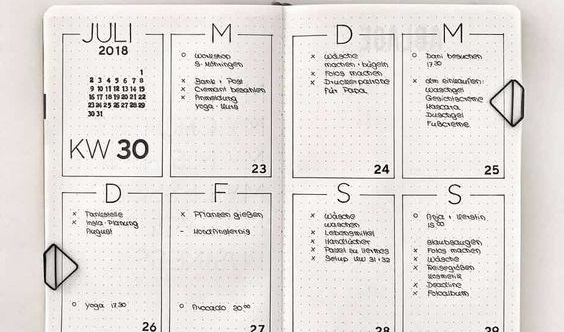 JULI
2018
1
2 3 4 5 6 7 8
9 10 11 12 13 14 15
16 17 18 19 20 21 22
23 24 25 26 27 28 29
30 31
KW 30
M
o Workshop
S-Möhringen
x Bank + Post
x Cremant bezahlen
x Anmeldung
Yoga-Kurs
23
D
x Wäsche
machen + bügeln
x Fotos machen
x Druckerpatrone
für Papa
24
M
o Dani besuchen
17:30
x dm einkaufen:
Waschgel
Gesichtscreme
Mascara
Duschgel
Fußcreme
25
D
x Tankstelle
x Insta-Planung
August
o Yoga 17:30
26
F
x Pflanzen gießen
- Mondfinsternis
o Avocado 20:00
27
S
x Wäsche
waschen
x Lebensmittel
x Handtücher
x Paket zu Hermes
x Setup KW 31+32
28
S
o Anja + Kerstin
15:00
Staubsaugen
x Fotos machen
x Wäsche
x Reisegrößen
Kosmetik
x Deadline
x Fotoalbum
29